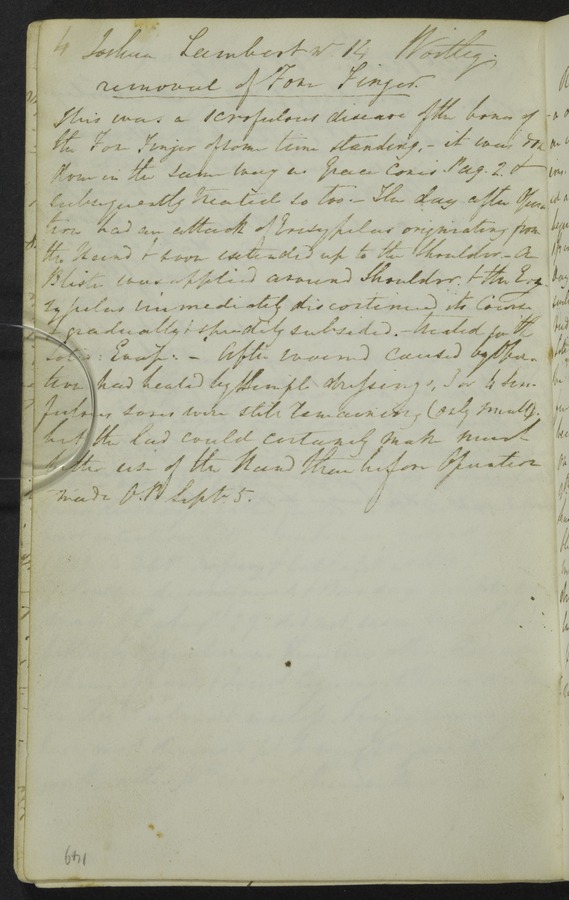 4 Joshua Lambert 14 Wortley
removal of Fore Finger.
This was a scrofulous disease of the bones of
the Fore Finger of some time standing, - it was
done in the same way as Grace Pag. 2 &
subsequently treated so too - The day after Opera-
tion had an attack of Erisypelas originating from
the Hand & soon extended up to the Shoulder - A
Blister was applied around Shoulder, & the Ery-
sypelas immediately discontinued its Course
& gradually & speedily subsided, - treated with
Lotio: Evap: - After wound caused by Opera-
tion had healed by Simple dressings, 3 or 4 Scro-
fulous sores were still remaining (only small).
but the Lad could certainly make more
better use of the Hand than before Operation
made O.P. Sept. 5.